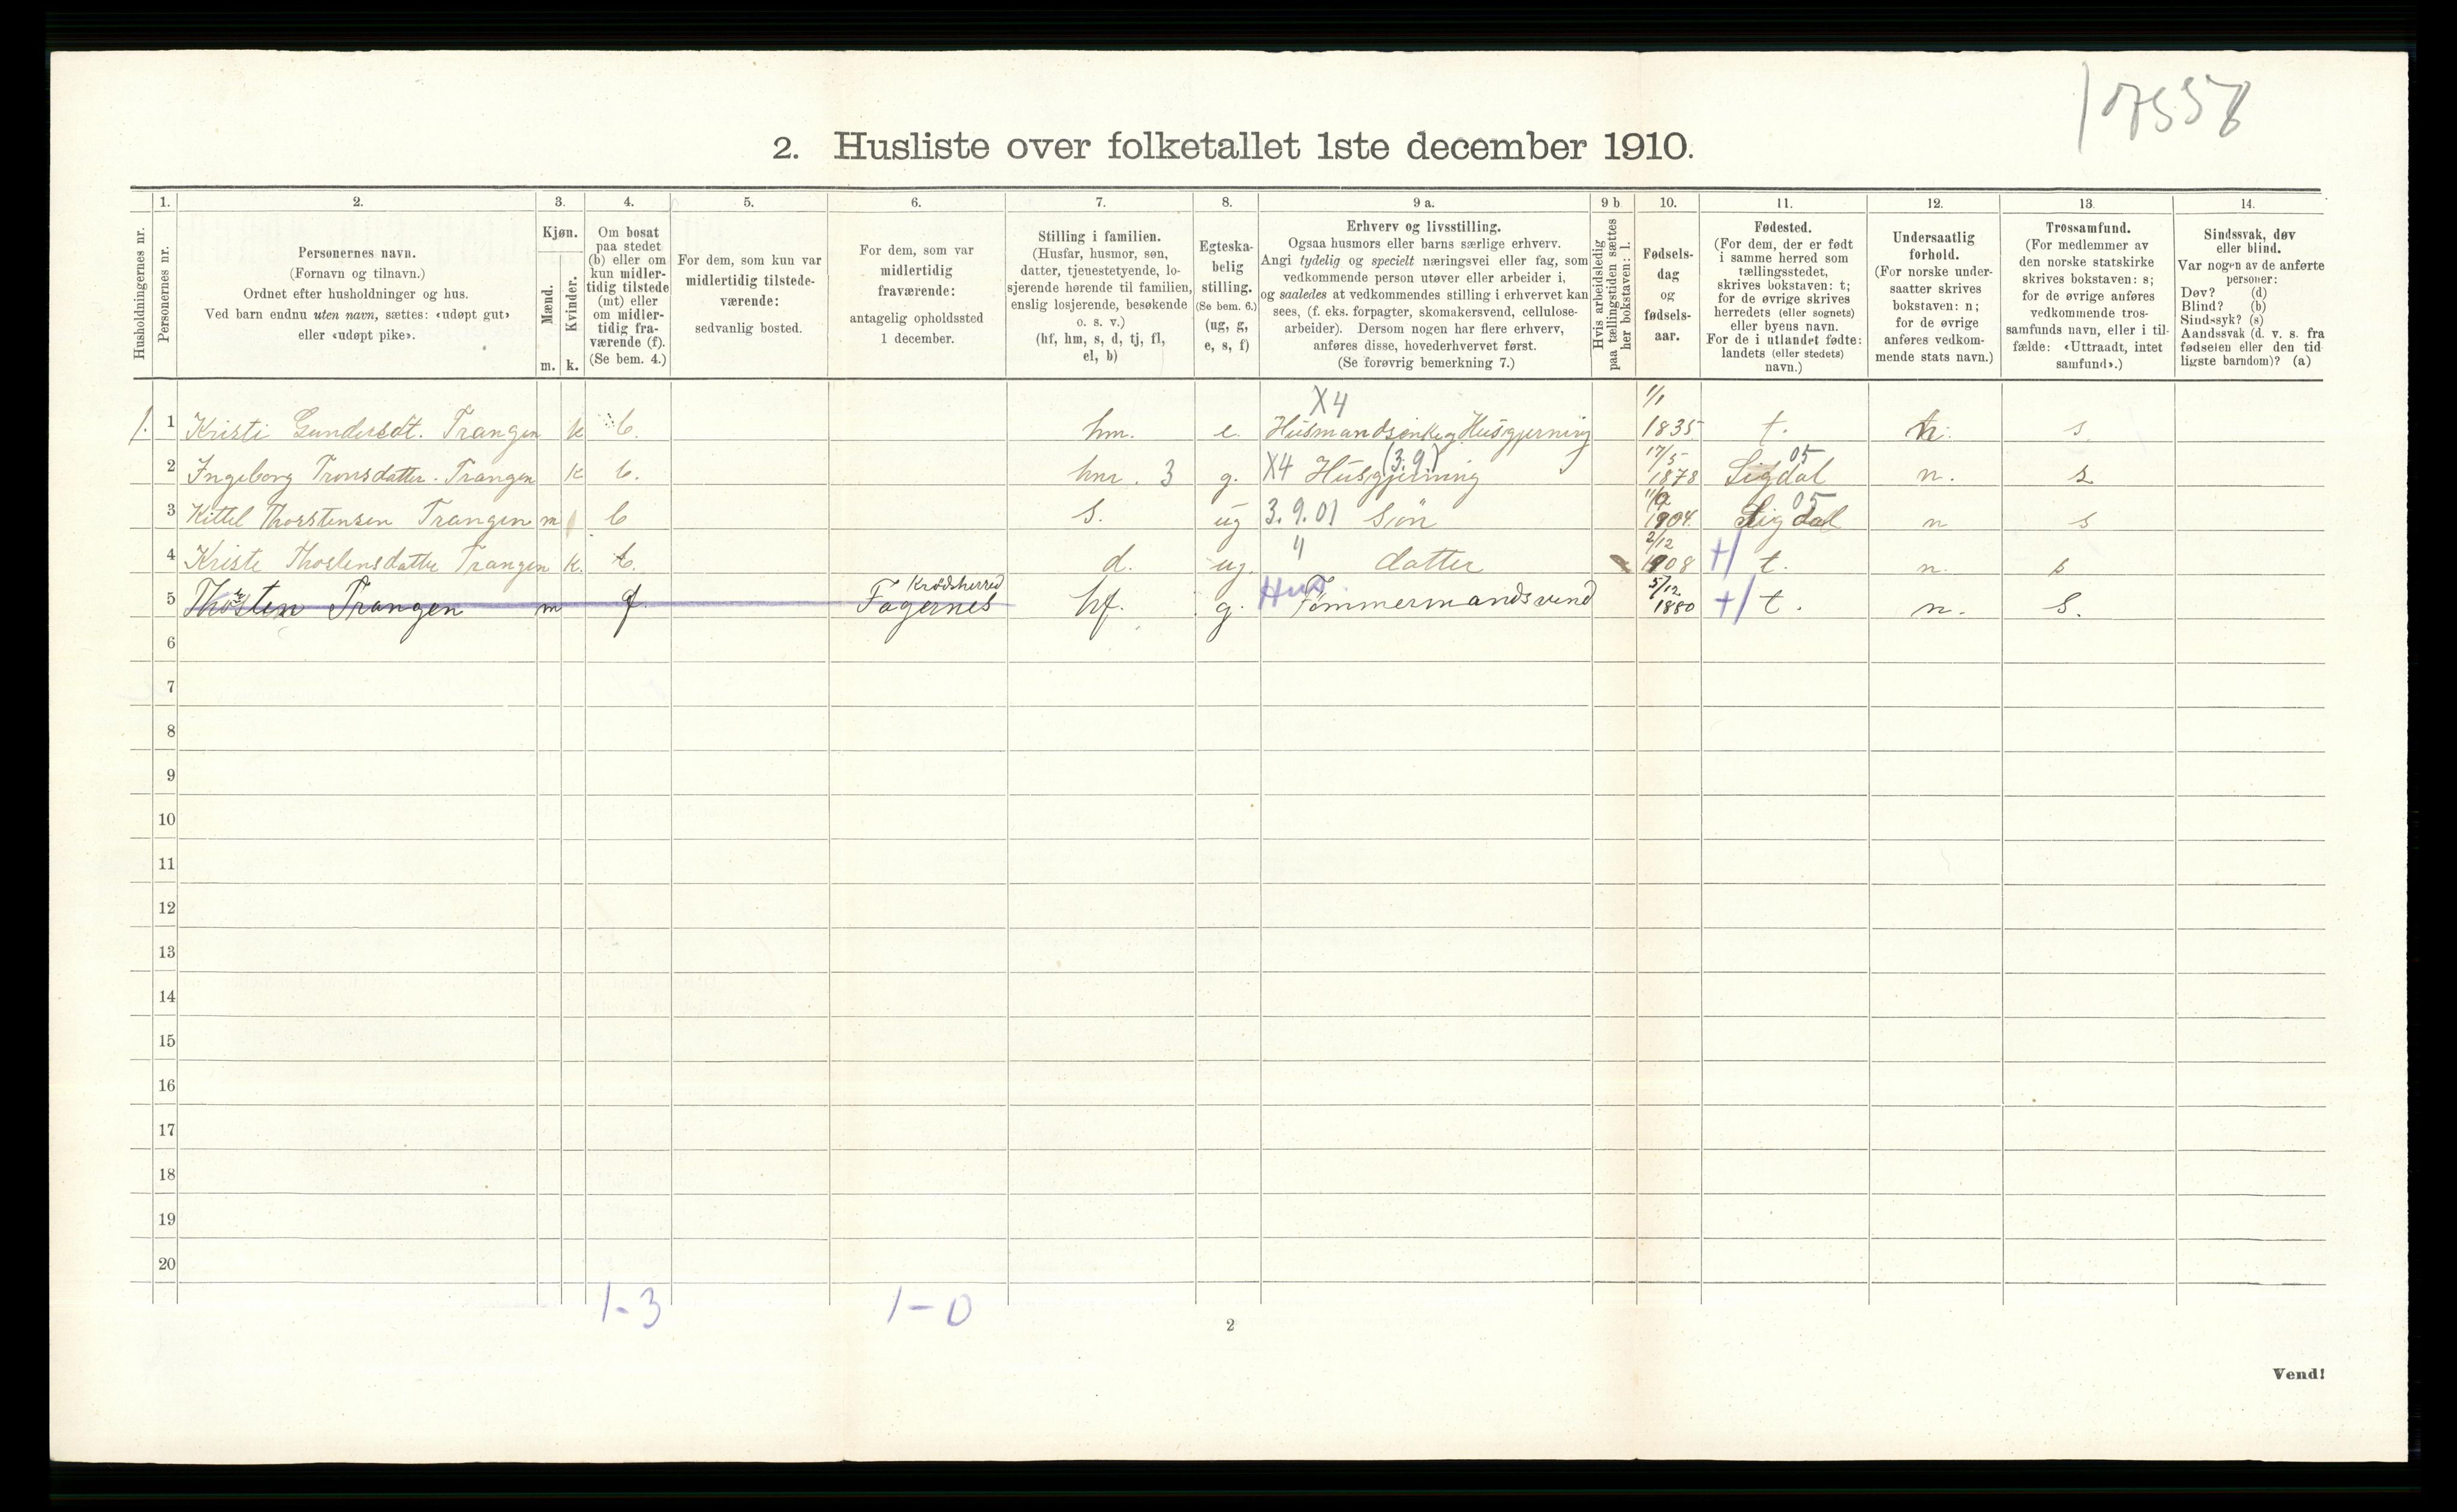 10558
2. Husliste over folketallet 1ste december 1910.
Husholdningernes nr.
1.
Personernes nr.
2.
Personernes navn.
(Fornavn og tilnavn.)
Ordnet efter husholdninger og hus.
Ved barn endnu uten navn, sættes: «udøpt gut»
eller «udøpt pike».
3.
Kjøn.
Mænd.
Kvinder.
m.
k.
4.
Om bosat
paa stedet
(b) eller om
kun midler-
tidig tilstede
(mt) eller
om midler-
tidig fra-
værende (f).
(Se bem. 4.)
5.
For dem, som kun var
midlertidig tilstede-
værende:
sedvanlig bosted.
6.
For dem, som var
midlertidig
fraværende:
antagelig opholdssted
1 december.
7.
Stilling i familien.
(Husfar, husmor, søn,
datter, tjenestetyende, lo-
sjerende hørende til familien,
enslig losjerende, besøkende
o. s. v.)
(hf, hm, s, d, tj, fl,
el, b)
8.
Egteska-
belig
stilling.
(Se bem. 6.)
(ug, g,
e, s, f)
9 a.
Erhverv og livsstilling.
Ogsaa husmors eller barns særlige erhverv.
Angi tydelig og specielt næringsvei eller fag, som
vedkommende person utøver eller arbeider i,
og saaledes at vedkommendes stilling i erhvervet kan
sees, (f. eks. forpagter, skomakersvend, cellulose-
arbeider). Dersom nogen har flere erhverv,
anføres disse, hovederhvervet først.
(Se forøvrig bemerkning 7.)
9 b
Hvis arbeidsledig
paa tællingstiden sættes
her bokstaven: l.
10.
Fødsels-
dag
og
fødsels-
aar.
11.
Fødested.
(For dem, der er født
i samme herred som
tællingsstedet,
skrives bokstaven: t;
for de øvrige skrives
herredets (eller sognets)
eller byens navn.
For de i utlandet fødte:
landets (eller stedets)
navn.)
12.
Undersaatlig
forhold.
(For norske under-
saatter skrives
bokstaven: n;
for de øvrige
anføres vedkom-
mende stats navn.)
13.
Trossamfund.
(For medlemmer av
den norske statskirke
skrives bokstaven: s;
for de øvrige anføres
vedkommende tros-
samfunds navn, eller i til-
fælde: «Uttraadt, intet
samfund».)
14.
Sindssvak, døv
eller blind.
Var nogen av de anførte
personer:
Døv? (d)
Blind? (b)
Sindssyk? (s)
Aandssvak (d. v. s. fra
fødselen eller den tid-
ligste barndom)? (a)
X4 1/1
1. 1 Kristi Gundersdt. Trangen k b. hm. e. Husmandsenke Husgjerning 1835 t. n. s
2 Ingeborg Tronsdatter. Trangen k b. hm. 3 g. X4 Husgjerning (3.9) 17/5 1878 Sigdal 05 n. s
3 Kittel Thorstensen Trangen m b s. ug 3.9.01 Søn 1904. Sigdal 05 n s
4 Kristi Thostensdatter Trangen k. b. d. ug. " datter 2/12 1908 +/ t. n. s
5 Thorsten Trangen m f Krødsherred Fagernes hf. g. Tømmermandsvend 5/12 1880 +/ t. n. s.
6
7
8
9
10
11
12
13
14
15
16
17
18
19
20
1-3 1-0
2
Vend!